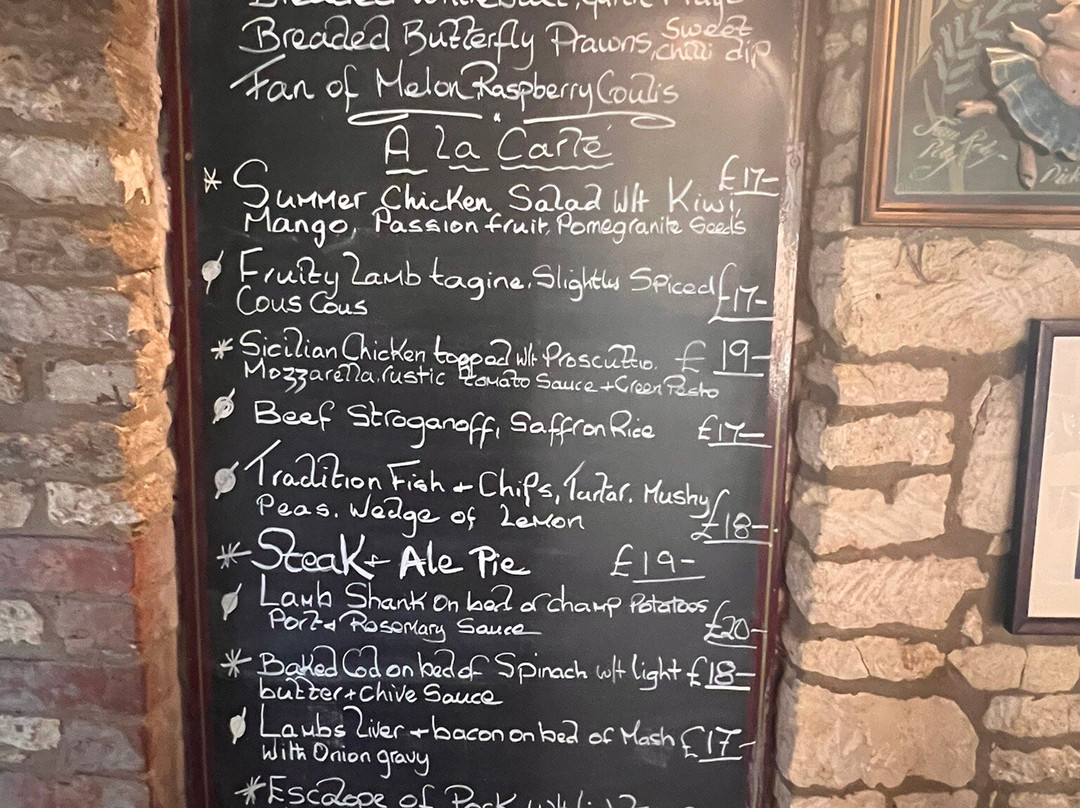 Breaded Whitebait, garlic Mayo
Breaded Butterfly Prawns, Sweet chilli dip
Fan of Melon Raspberry Coulis
A La Carté
* Summer Chicken Salad Wit Kiwi, £17-
Mango, Passion fruit, Pomegranite Seeds
Fruity Lamb tagine, Slightly Spiced £17-
Cous Cous
* Sicilian Chicken topped wit Proscuttio. £19-
Mozzarella. rustic tomato Sauce + Green Pesto
Beef Stroganoff, Saffron Rice £17-
Tradition Fish + Chips, Tartar. Mushy
Peas. Wedge of Lemon £18-
* Steak + Ale Pie £19-
Lamb Shank on bed of champ Potatoes
Port + Rosemary Sauce £20-
* Baked Cod on bed of Spinach wit light £18-
butter + Chive Sauce
Lambs Liver + bacon on bed of Mash £17-
With Onion gravy
* Escalope of Pork